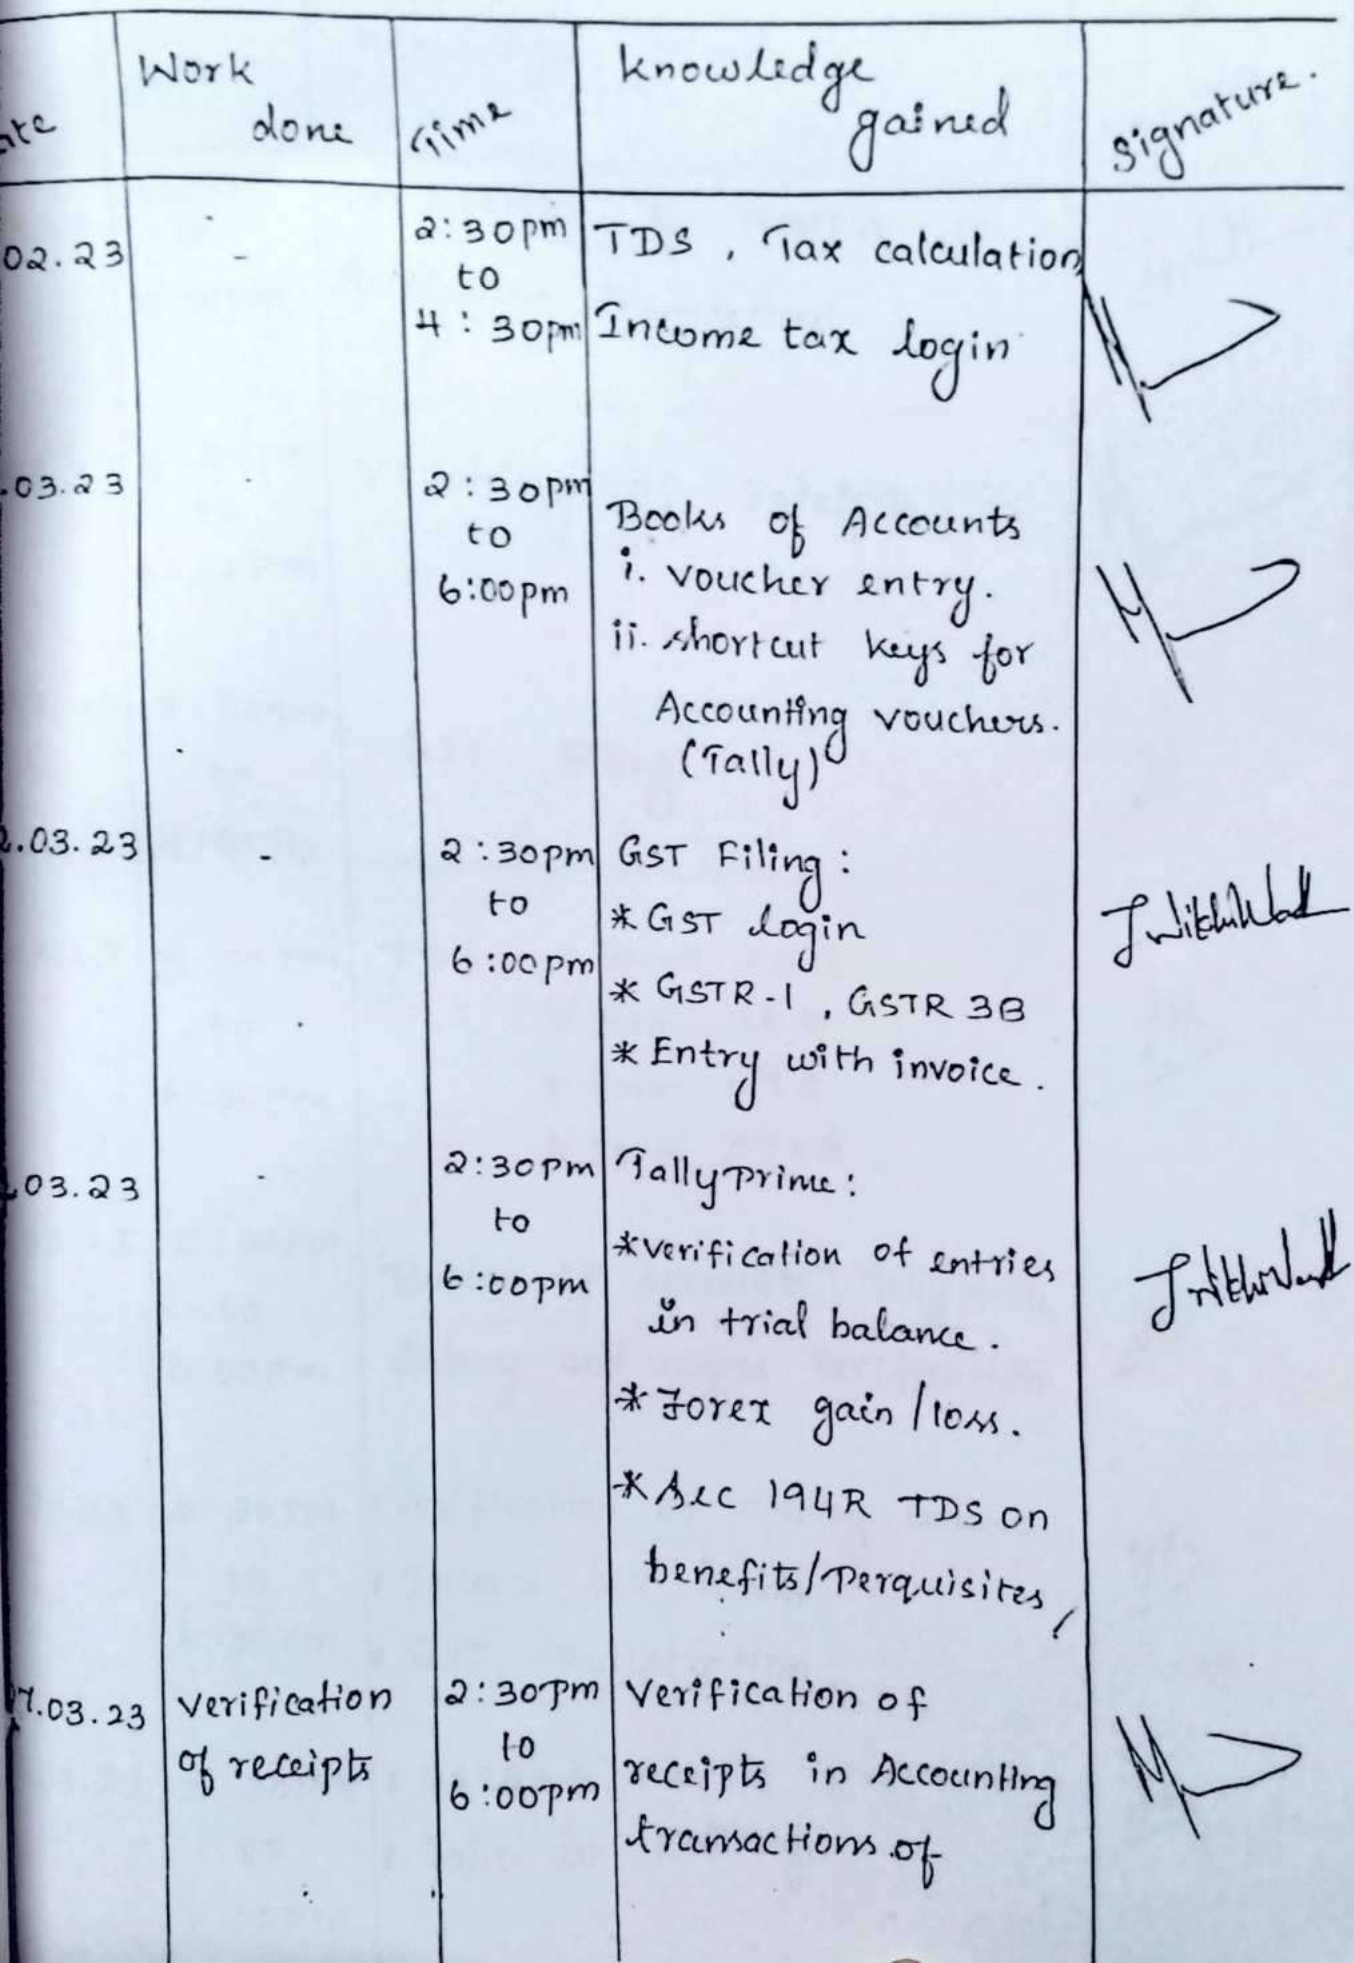 Work done
Time
Knowledge gained
Signature.
02.23
-
2:30pm
to
4:30pm
TDS, Tax calculation,
Income tax login
.03.23
-
2:30pm
to
6:00pm
Books of Accounts
i. voucher entry.
ii. shortcut keys for
Accounting vouchers.
(Tally)
.03.23
-
2:30pm
to
6:00pm
GST Filing:
* GST login
* GSTR-1, GSTR 3B
* Entry with invoice.
.03.23
-
2:30pm
to
6:00pm
Tally Prime:
* verification of entries
in trial balance.
* Forex gain/loss.
* Sec 194R TDS on
benefits/Perquisites,
7.03.23
verification
of receipts
2:30pm
to
6:00pm
Verification of
receipts in Accounting
transactions of